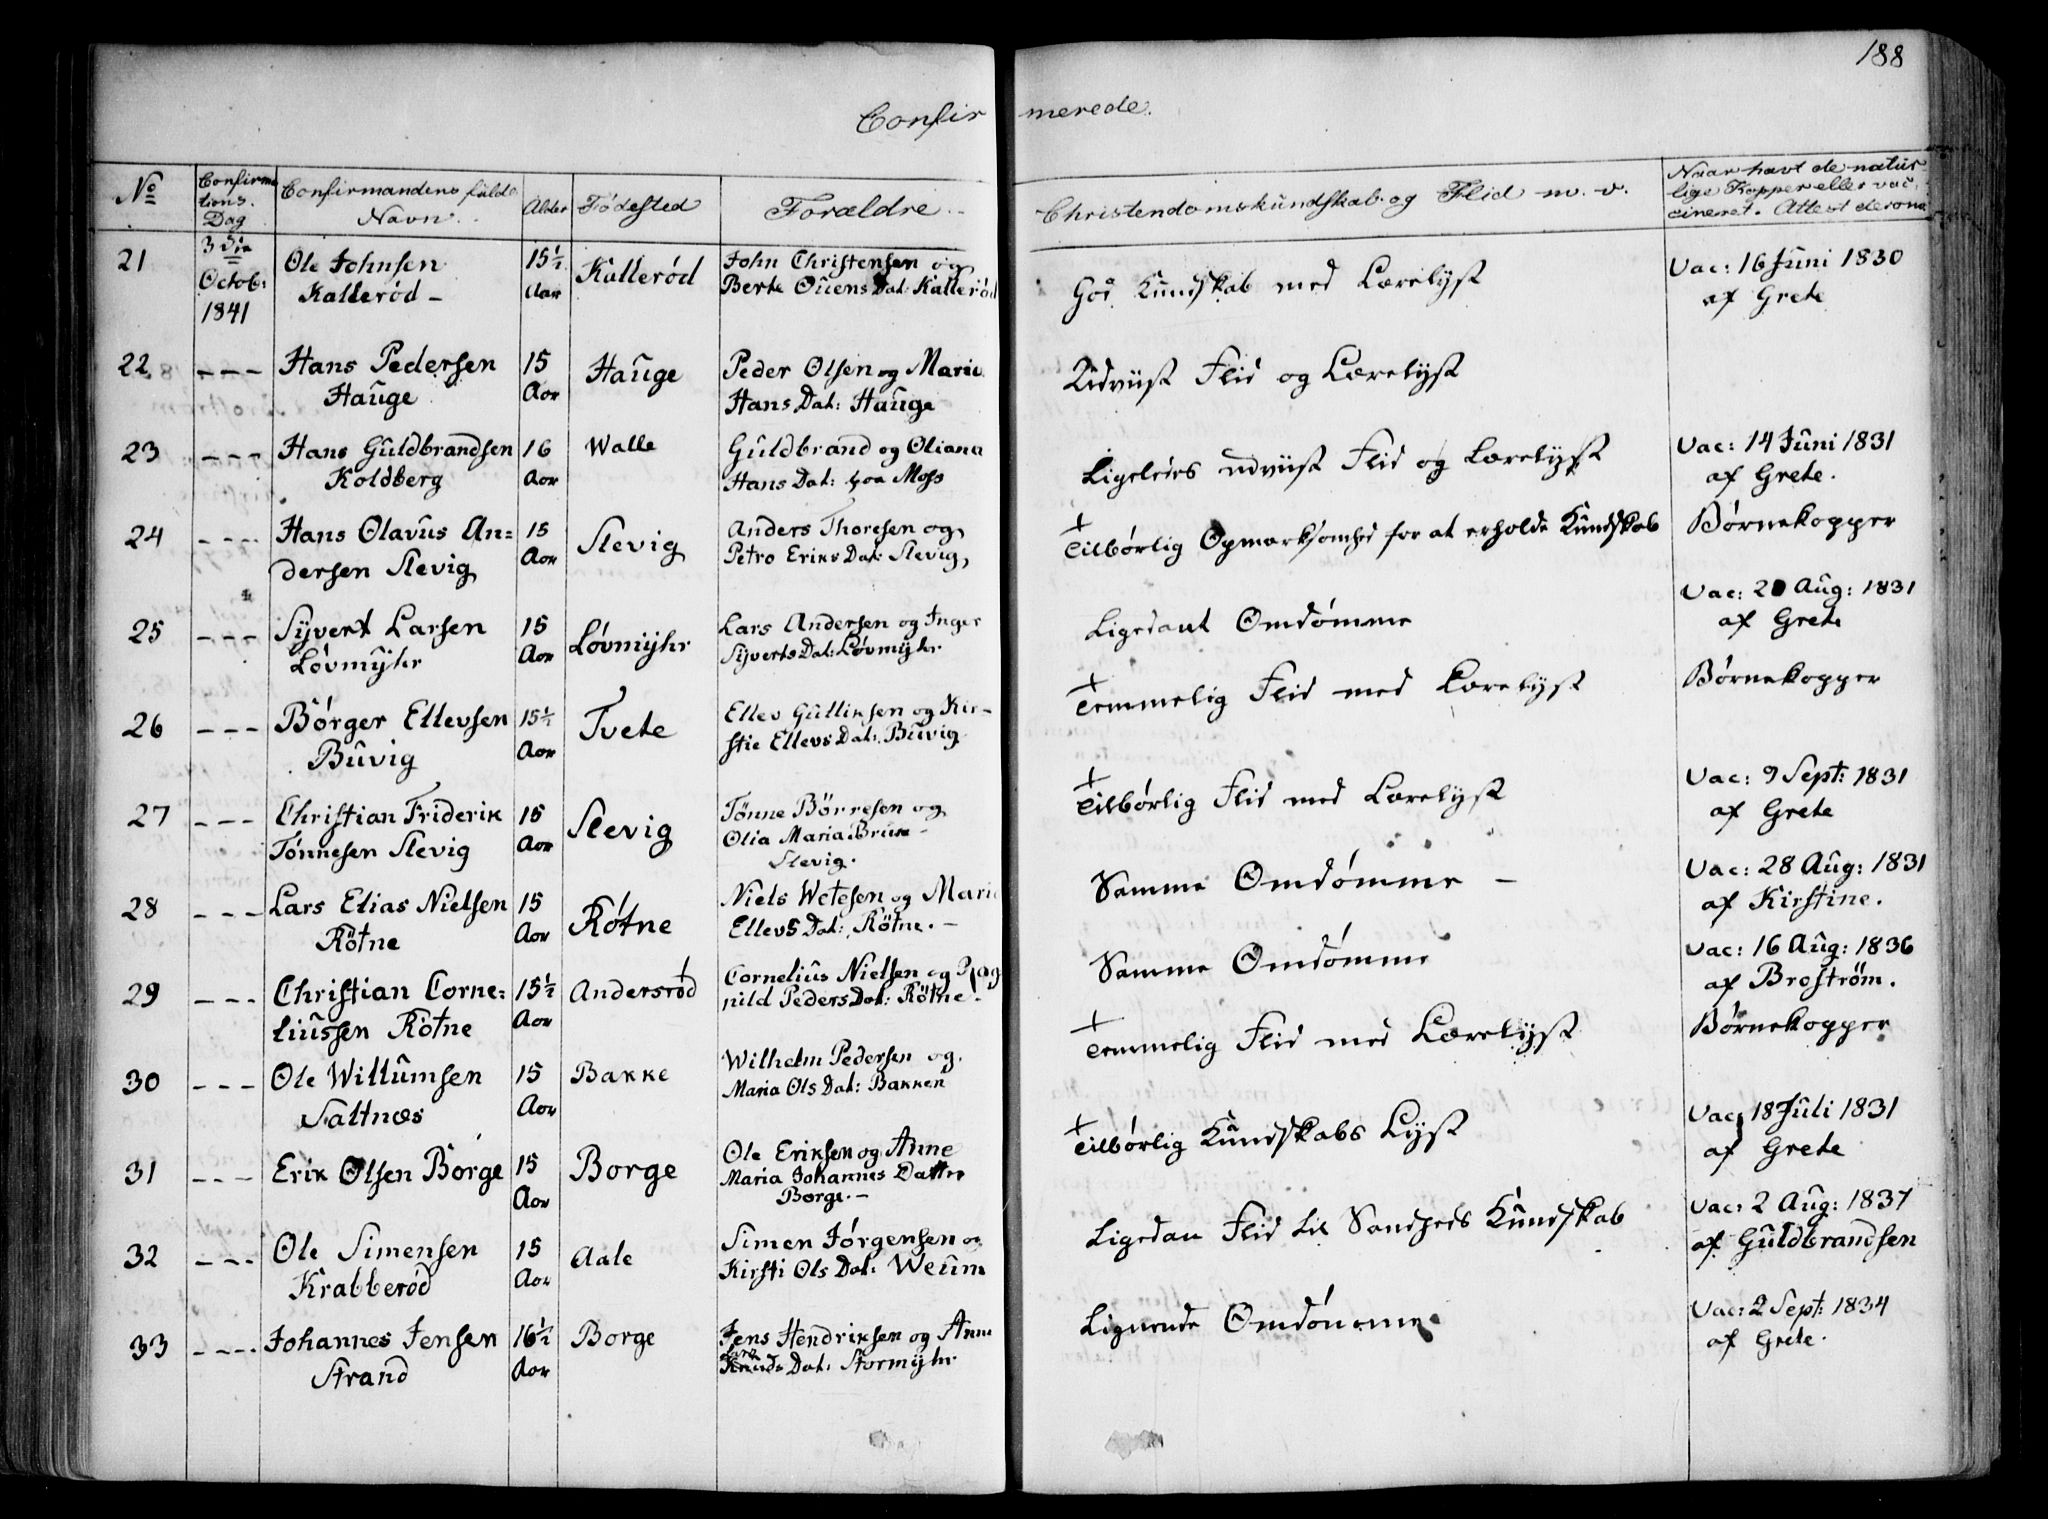 188
Confirmerede.
No Confirmations. Dag Confirmandens fulde Navn. Alder Fødested Forældre Christendomskundskab og Flid m. v. Naar havt de naturlige Kopper eller vaccineret. Attest derom
21 3die Octob: 1841 Ole Johnsen Kallerød 15½ Aar Kallerød John Christensen og Berte Ouens Dat: Kallerød God Kundskab med Lærelyst Vac: 16 Juni 1830 af Grete
22 --- Hans Pedersen Hauge 15 Aar Hauge Peder Olsen og Maria Hans Dat: Hauge Udviist Flid og Lærelyst
23 --- Hans Guldbrandsen Koldberg 16 Aar Walle Guldbrand og Oliana Hans Dat: paa Moss Ligeledes udviist Flid og Lærelyst Vac: 14 Juni 1831 af Grete.
24 --- Hans Olavus Andersen Slevig 15 Aar Slevig Anders Thoresen og Petro Eriks Dat: Slevig + Tilbørlig Opmærksomhed for at erholde Kundskab Børnekopper
25 --- Syvert Larsen Løvmyhr 15 Aar Løvmyhr Lars Andersen og Inger Syverts Dat: Løvmyhr Ligedant Omdømme Vac: 20 Aug: 1831 af Grete
26 --- Børger Ellevsen Buvig 15½ Aar Tvete Ellev Gulliksen og Kirstie Ellevs Dat: Buvig + Temmelig Flid med Lærelyst Børnekopper
27 --- Christian Friderik Tønnesen Slevig 15 Aar Slevig Tønne Børresen og Olia Maria Brun Slevig. + Tilbørlig Flid med Lærelyst Vac: 9 Sept: 1831 af Grete
28 --- Lars Elias Nielsen Rötne 15 Aar Rötne Niels Wetesen og Maria Ellevs Dat: Rötne. Samme Omdømme Vac: 28 Aug: 1831 af Kirstine.
29 --- Christian Corneliussen Rötne 15½ Aar Andersrød Cornelius Nielsen og Ragnild Peders Dat: Rötne. Samme Omdømme Vac: 16 Aug: 1836 af Broström.
30 --- Ole Willumsen Saltnæs 15 Aar Bakke Wilhelm Pedersen og Maria Ols Dat: Bakken + Temmelig Flid med Lærelyst Børnekopper
31 --- Erik Olsen Borge 15 Aar Borge Ole Eriksen og Anne Maria Johannes Datter Borge. + Tilbørlig Kundskabs Lyst Vac: 18 Juli 1831 af Grete
32 --- Ole Simensen Krabberød 15 Aar Aale Simen Jørgensen og Kirsti Ols Dat: Weum Ligedan Flid til Sandheds Kundskab Vac: 2 Aug: 1837 af Guldbrandsen
33 --- Johannes Jensen Strand 16½ Aar Borge Jens Hendriksen og Anne Knuds Dat: Stormyhr Lignende Omdømme Vac: 2 Sept: 1834 af Grete.